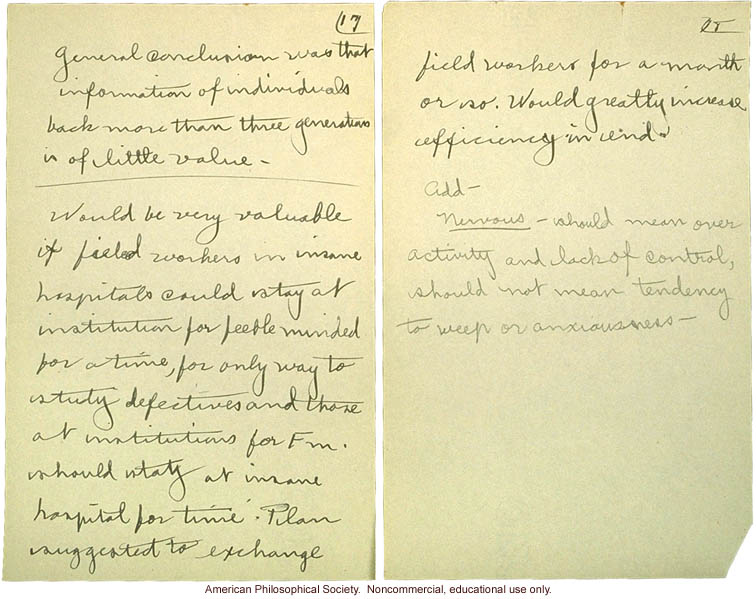 17
General conclusion was that
information of individuals
back more than three generations
is of little value –
Would be very valuable
if field workers in insane
hospitals could stay at
institution for feeble minded
for a time, for only way to
study defectives and those
at institutions for F m.
should stay at insane
hospital for time. Plan
suggested to exchange
field workers for a month
or so. Would greatly increase
efficiency in end.
Add –
Nervous – should mean over
activity and lack of control,
should not mean tendency
to weep or anxiousness –
American Philosophical Society. Noncommercial, educational use only.